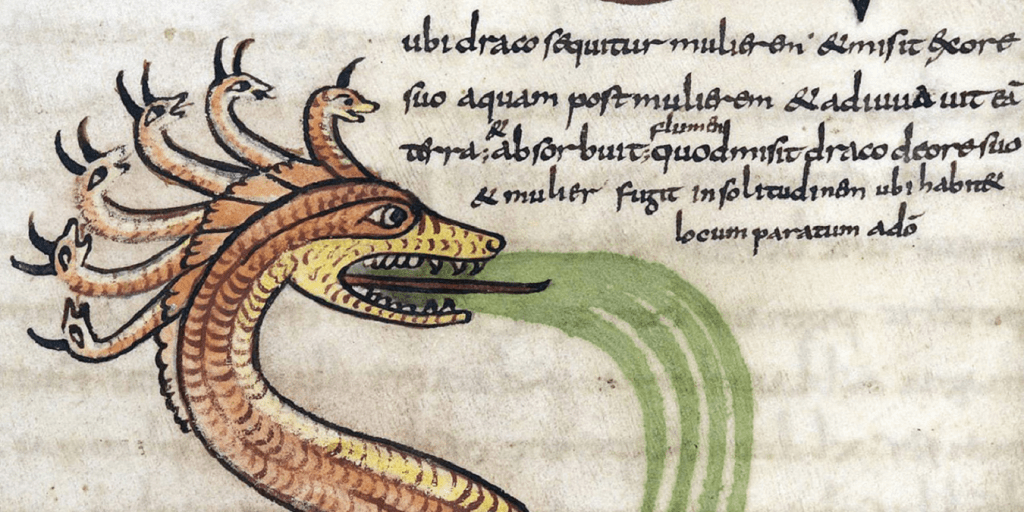 ubi draco sequitur mulieren & misit ex ore
suo aquam post mulierem & adiuuauit eā
terra; & absorbuit; flumen quod misit draco de ore suo
& mulier fugit in solitudinem ubi habit&
locum paratum a dō